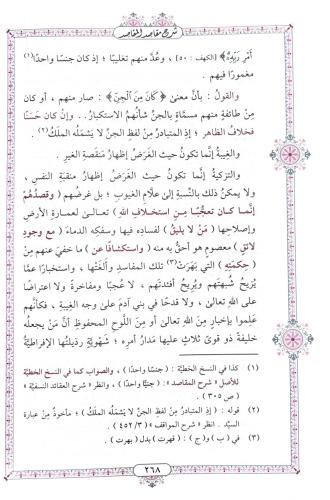 شرح مقاصد المقاصد
أَمْرِ رَبِّهِ﴾ [الكهف : ٥٠] ، وعُدَّ منهم تغليبًا ؛ إذ كان جنسًا واحدًا(١)
مغمورًا فيهم .
والقولُ : بأنَّ معنىٰ ﴿كَانَ مِنَ الْجِنِّ﴾ : صار منهم ، أو كان
مِنْ طائفةٍ منهم مسمَّاةٍ بالجنِّ شأنُهمُ الاستكبارُ . . وإنْ كان حَسَنًا
فخلافُ الظاهر ؛ إذِ المتبادرُ مِنْ لفظِ الجنِّ لا يَشْمَلُهُ الملَكُ(٢) .
والغِيبةُ إنَّما تكونُ حيث الغَرَضُ إظهارُ مَنقَصةِ الغير .
والتزكيةُ إنَّما تكونُ حيث الغَرَضُ إظهارُ منقبَةِ النَّفس ،
ولا يمكنُ ذلك بالنِّسبةِ إلىٰ علَّامِ الغيوبِ ؛ بل غرضُهم ( وقصدُهم
إنَّما كان تعجُّبًا مِنِ استخلافِ اللهِ ) تعالىٰ لعمارةِ الأرضِ
وإصلاحِها ( مَنْ لا يليقُ ) لفسادِهِ فيها وسفكِهِ الدماءَ ( مع وجودِ
لائقٍ ) معصومٍ هو أحقُّ به منه ( واستكشافًا عن ) ما خفيَ عنهم مِنْ
( حِكمتِهِ ) التي بَهَرَتْ(٣) تلك المفاسدَ وألغَتْها ، واستخبارًا عمَّا
يُزيحُ شبهتَهم ويُريحُ أفئدتَهم ، لا عُجبًا ومفاخرةً ولا اعتراضًا
على اللهِ تعالىٰ ، ولا قدحًا في بني آدمَ علىٰ وجهِ الغِيبةِ ، فكأنَّهم
عَلِموا بإخبارٍ مِنَ اللهِ تعالىٰ أو مِنَ اللَّوحِ المحفوظِ أنَّ مَنْ يجعلُهُ
خليفةً ذو قوىً ثلاثٍ عليها مَدارُ أمرِهِ ؛ شَهْويَّةٍ رذيلتُها الإفراطيَّةُ
(١) كذا في النسخ الخطيَّة : ( جنسًا واحدًا ) ، والصواب كما في النسخ الخطيَّة
للأصل « شرح المقاصد » : ( جنيًّا واحدًا ) ، وانظر « شرح العقائد النسفية »
( ص ٣٠٥ ) .
(٢) قوله : ( إذِ المتبادرُ مِنْ لفظِ الجنِّ لا يَشمَلُهُ الملَكُ ) ؛ مأخوذٌ مِنْ عبارة
السيِّد . انظر « شرح المواقف » ( ٤٥٢/٣ ) .
(٣) في ( ب ) و( ج ) : ( قهرت ) بدل ( بهرت ) .
٢٦٨